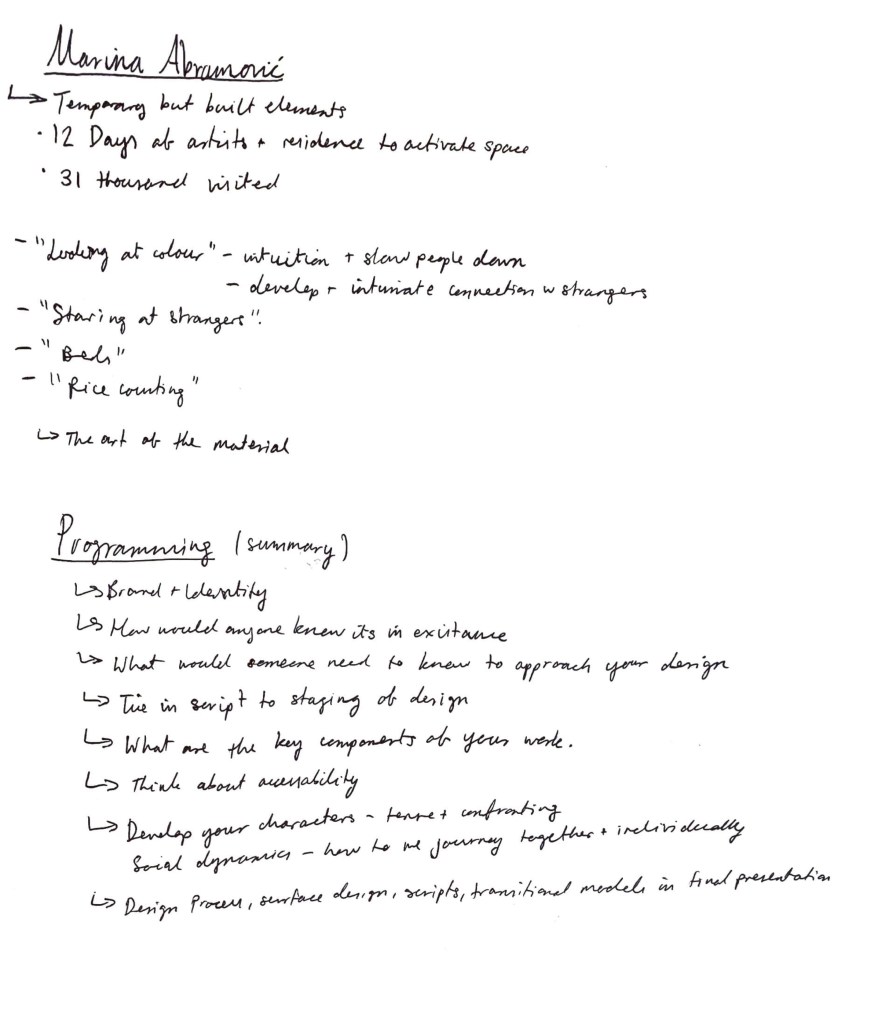 Marina Abramović
↳ Temporary but built elements
· 12 Days of artists + residence to activate space
· 31 thousand visited
- "Looking at colour" - intuition + slow people down
- develop + intimate connection w strangers
- "Staring at strangers".
- "Beds"
- "Rice counting"
↳ The art of the material
Programming (summary)
↳ Brand + Identity
↳ How would anyone know its in existance
↳ What would someone need to know to approach your design
↳ Tie in script to staging of design
↳ What are the key components of your work.
↳ Think about accessability
↳ Develop your characters - tense + confronting
Social dynamics - how to we journey together + individually
↳ Design Process, surface design, scripts, transitional models in final presentation